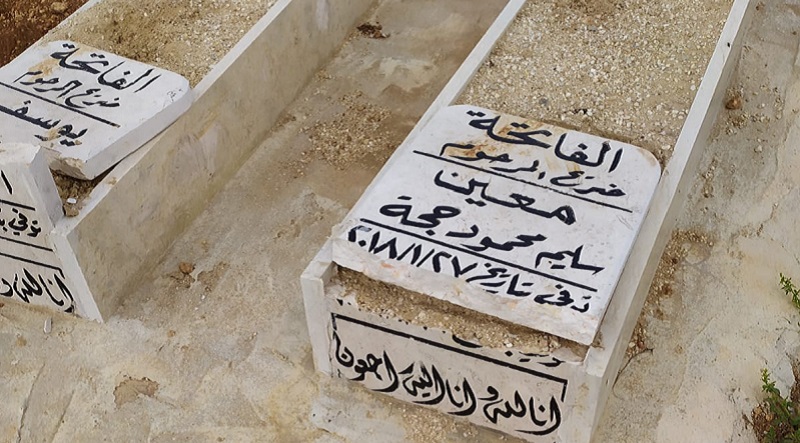 الفاتحة
ضريح المرحوم
معين
سليم محمود حجة
توفي بتاريخ ٢٠١٨/١/٢٧
انا لله و انا اليه راجعون
الفاتحة
ضريح المرحوم
يوسف
توفي
انا لله و